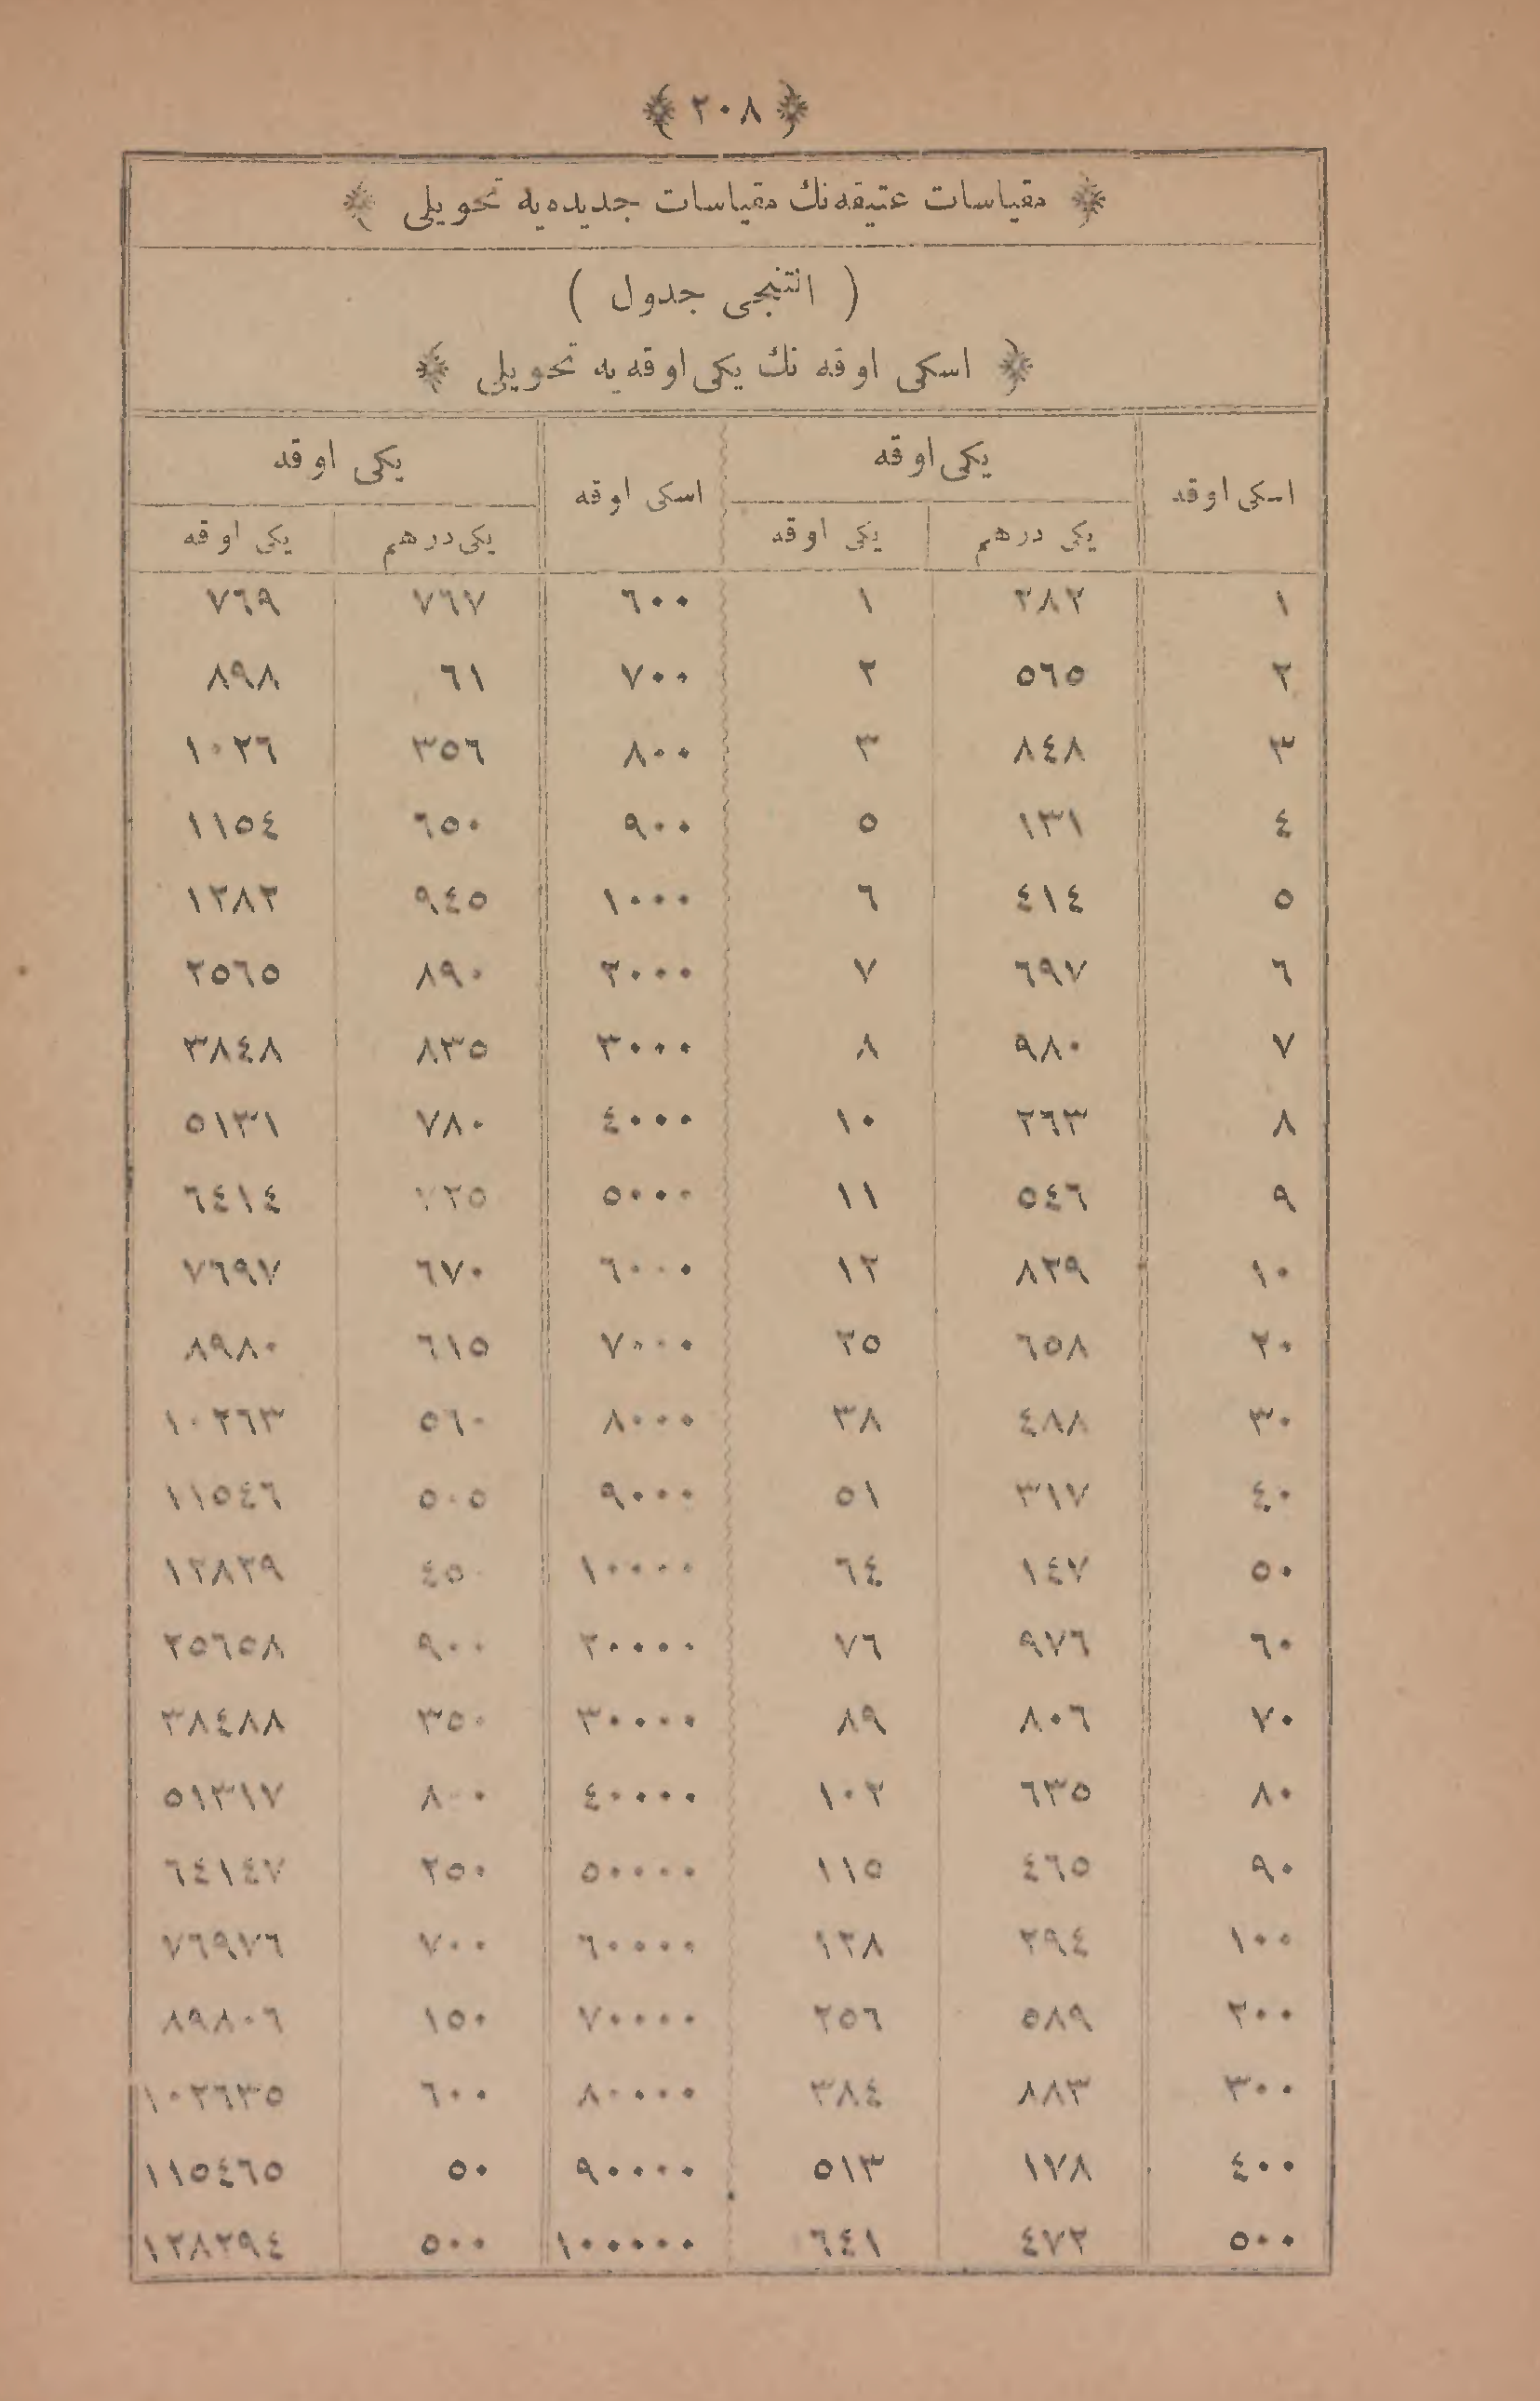 ﴿ ٢٠٨ ﴾
﴿ مقیاسات عتیقه‌نك مقیاسات جدیده‌یه تحویلی ﴾
( التنجی جدول )
﴿ اسكی اوقه نك یكی اوقه یه تحویلی ﴾
اسكی اوقه یكی اوقه اسكی اوقه یكی اوقه
یكی درهم یكی اوقه یكی درهم یكی اوقه
١ ٢٨٢ ١ ٦٠٠ ٧٦٧ ٧٦٩
٢ ٥٦٥ ٢ ٧٠٠ ٦١ ٨٩٨
٣ ٨٤٨ ٣ ٨٠٠ ٣٥٦ ١٠٢٦
٤ ١٣١ ٥ ٩٠٠ ٦٥٠ ١١٥٤
٥ ٤١٤ ٦ ١٠٠٠ ٩٤٥ ١٢٨٢
٦ ٦٩٧ ٧ ٢٠٠٠ ٨٩٠ ٢٥٦٥
٧ ٩٨٠ ٨ ٣٠٠٠ ٨٣٥ ٣٨٤٨
٨ ٢٦٣ ١٠ ٤٠٠٠ ٧٨٠ ٥١٣١
٩ ٥٤٦ ١١ ٥٠٠٠ ٧٢٥ ٦٤١٤
١٠ ٨٢٩ ١٢ ٦٠٠٠ ٦٧٠ ٧٦٩٧
٢٠ ٦٥٨ ٢٥ ٧٠٠٠ ٦١٥ ٨٩٨٠
٣٠ ٤٨٨ ٣٨ ٨٠٠٠ ٥٦٠ ١٠٢٦٣
٤٠ ٣١٧ ٥١ ٩٠٠٠ ٥٠٥ ١١٥٤٦
٥٠ ١٤٧ ٦٤ ١٠٠٠٠ ٤٥٠ ١٢٨٢٩
٦٠ ٩٧٦ ٧٦ ٢٠٠٠٠ ٩٠٠ ٢٥٦٥٨
٧٠ ٨٠٦ ٨٩ ٣٠٠٠٠ ٣٥٠ ٣٨٤٨٨
٨٠ ٦٣٥ ١٠٢ ٤٠٠٠٠ ٨٠٠ ٥١٣١٧
٩٠ ٤٦٥ ١١٥ ٥٠٠٠٠ ٢٥٠ ٦٤١٤٧
١٠٠ ٢٩٤ ١٢٨ ٦٠٠٠٠ ٧٠٠ ٧٦٩٧٦
٢٠٠ ٥٨٩ ٢٥٦ ٧٠٠٠٠ ١٥٠ ٨٩٨٠٦
٣٠٠ ٨٨٣ ٣٨٤ ٨٠٠٠٠ ٦٠٠ ١٠٢٦٣٥
٤٠٠ ١٧٨ ٥١٣ ٩٠٠٠٠ ٥٠ ١١٥٤٦٥
٥٠٠ ٤٧٢ ٦٤١ ١٠٠٠٠٠ ٥٠٠ ١٢٨٢٩٤